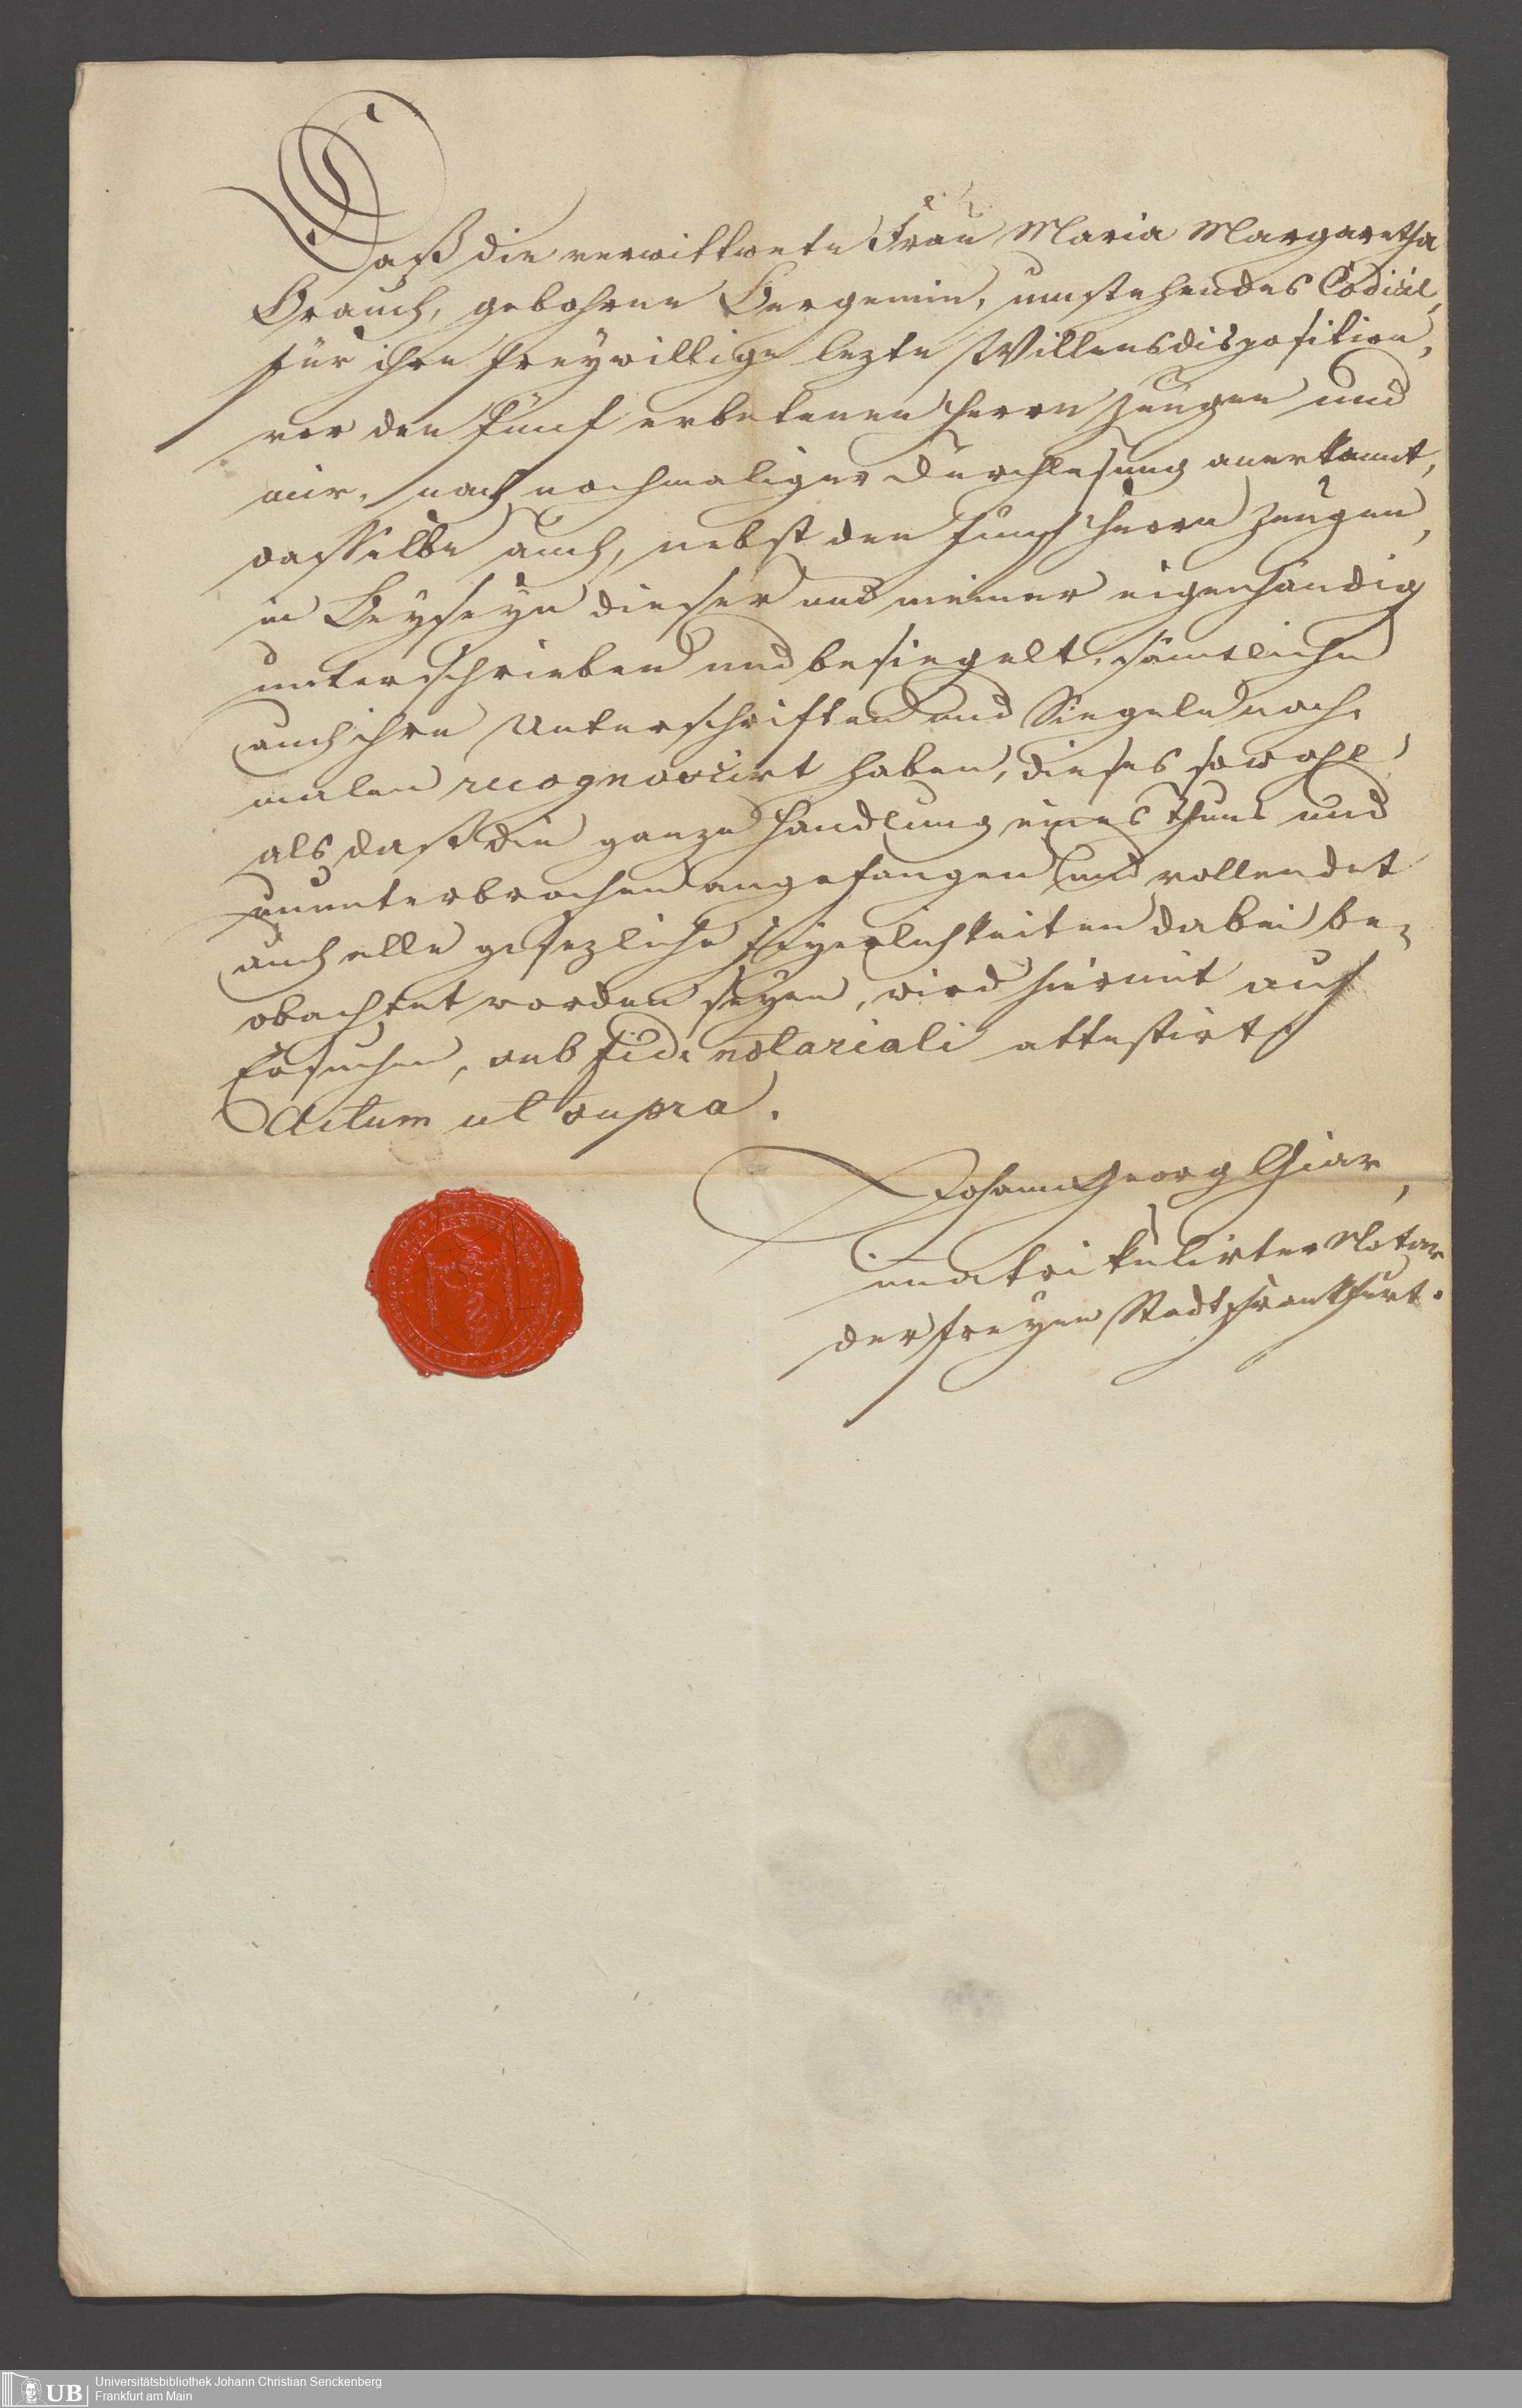 Daß die verwittwete Frau Maria Margaretha
Brauch, gebohrne Bergemin, umstehendes Codicil,
für ihre freywillige lezte Willensdisposition,
vor den fünf erbetenen Herrn Zeugen und
mir, nach nochmaliger Durchlesung anerkannt,
dasselbe auch, nebst den fünf Herrn Zeugen,
in Beyseyn dieser und meiner eigenhändig
unterschrieben und besiegelt, sämtliche
auch ihre Unterschriften und Siegel noch-
malen recognoscirt haben, dieses sowohl,
als daß die ganze Handlung eines Thuns und
ununterbrochen angefangen und vollendet
auch alle gesezliche Feyerlichkeiten dabei be-
obachtet worden seyen, wird hiermit auf
Ersuchen, sub fide notariali attestirt.
Actum ut supra.
Johann Georg Giar,
immatrikulirter Notar
der freyen Stadt Frankfurt.
UB
Universitätsbibliothek Johann Christian Senckenberg
Frankfurt am Main